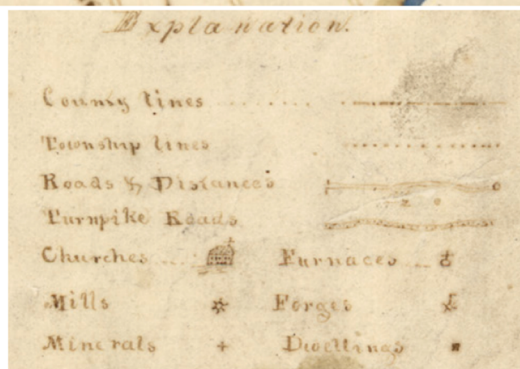 Explanation.
County lines
Township lines
Roads & Distances
Turnpike Roads
Churches Furnaces
Mills Forges
Minerals Dwellings